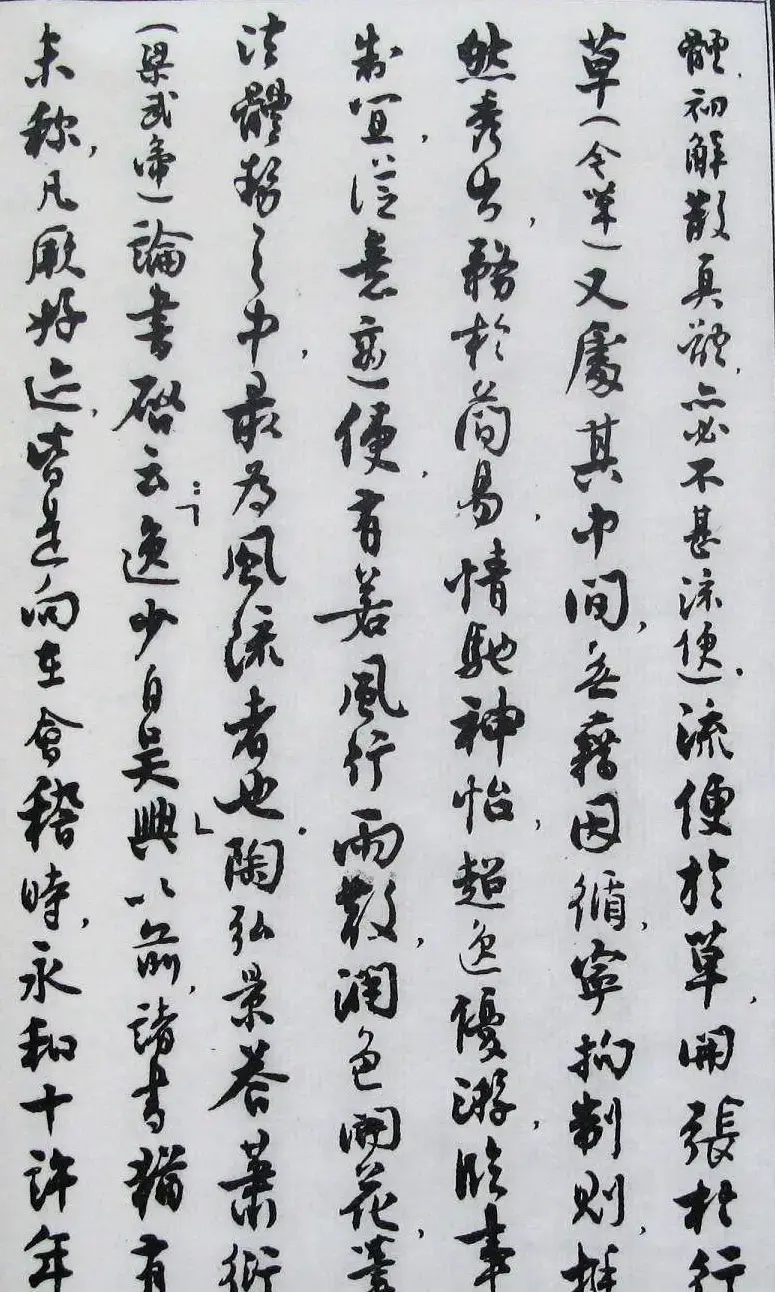 體,初解散真體,亦必不甚流便。流便於草,開張於行
草(今草)又處其中間,無藉因循,寧拘制則,挺
然秀出,務於簡易,情馳神怡,超逸優游,臨事
制宜,從意適便,有若風行雨散,潤色開花,筆
法體勢之中,最為風流者也。陶弘景答蕭衍
(梁武帝)論書啓云:「逸少自吳興以前,諸書猶有
未称,凡厥好迹,皆是向在會稽時,永和十許年